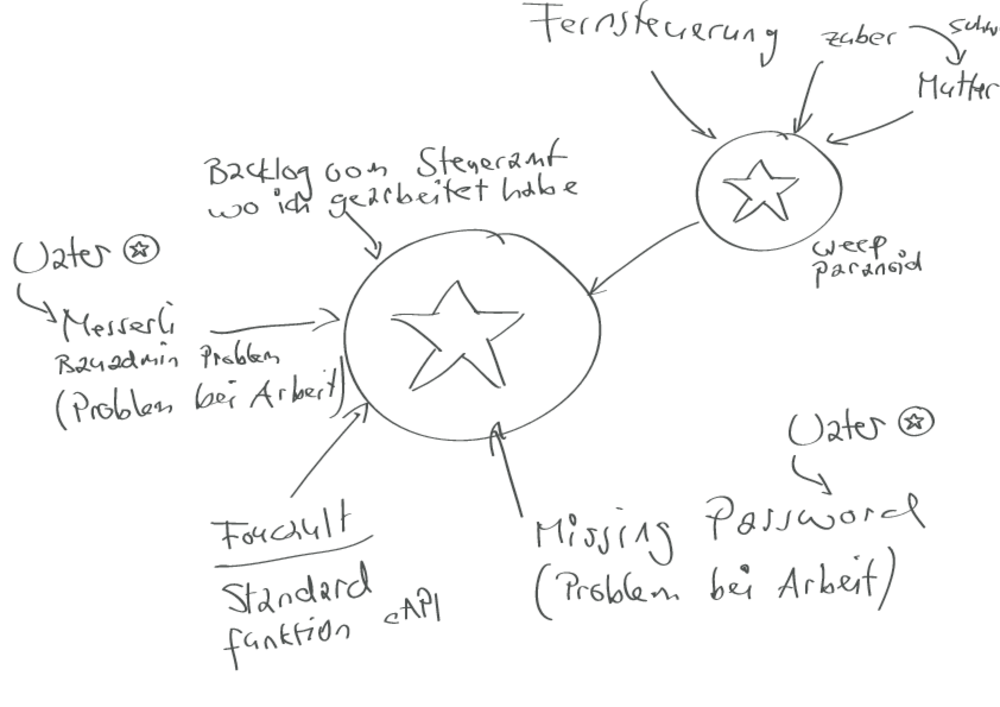 Fernsteuerung
zuber
Mutter
Backlog vom Steueramt
wo ich gearbeitet habe
weep
paranoid
Vater
Messerli
Bauadmin Problem
(Problem bei Arbeit)
Vater
Missing Password
(Problem bei Arbeit)
Foucault
Standard
funktion cAPI